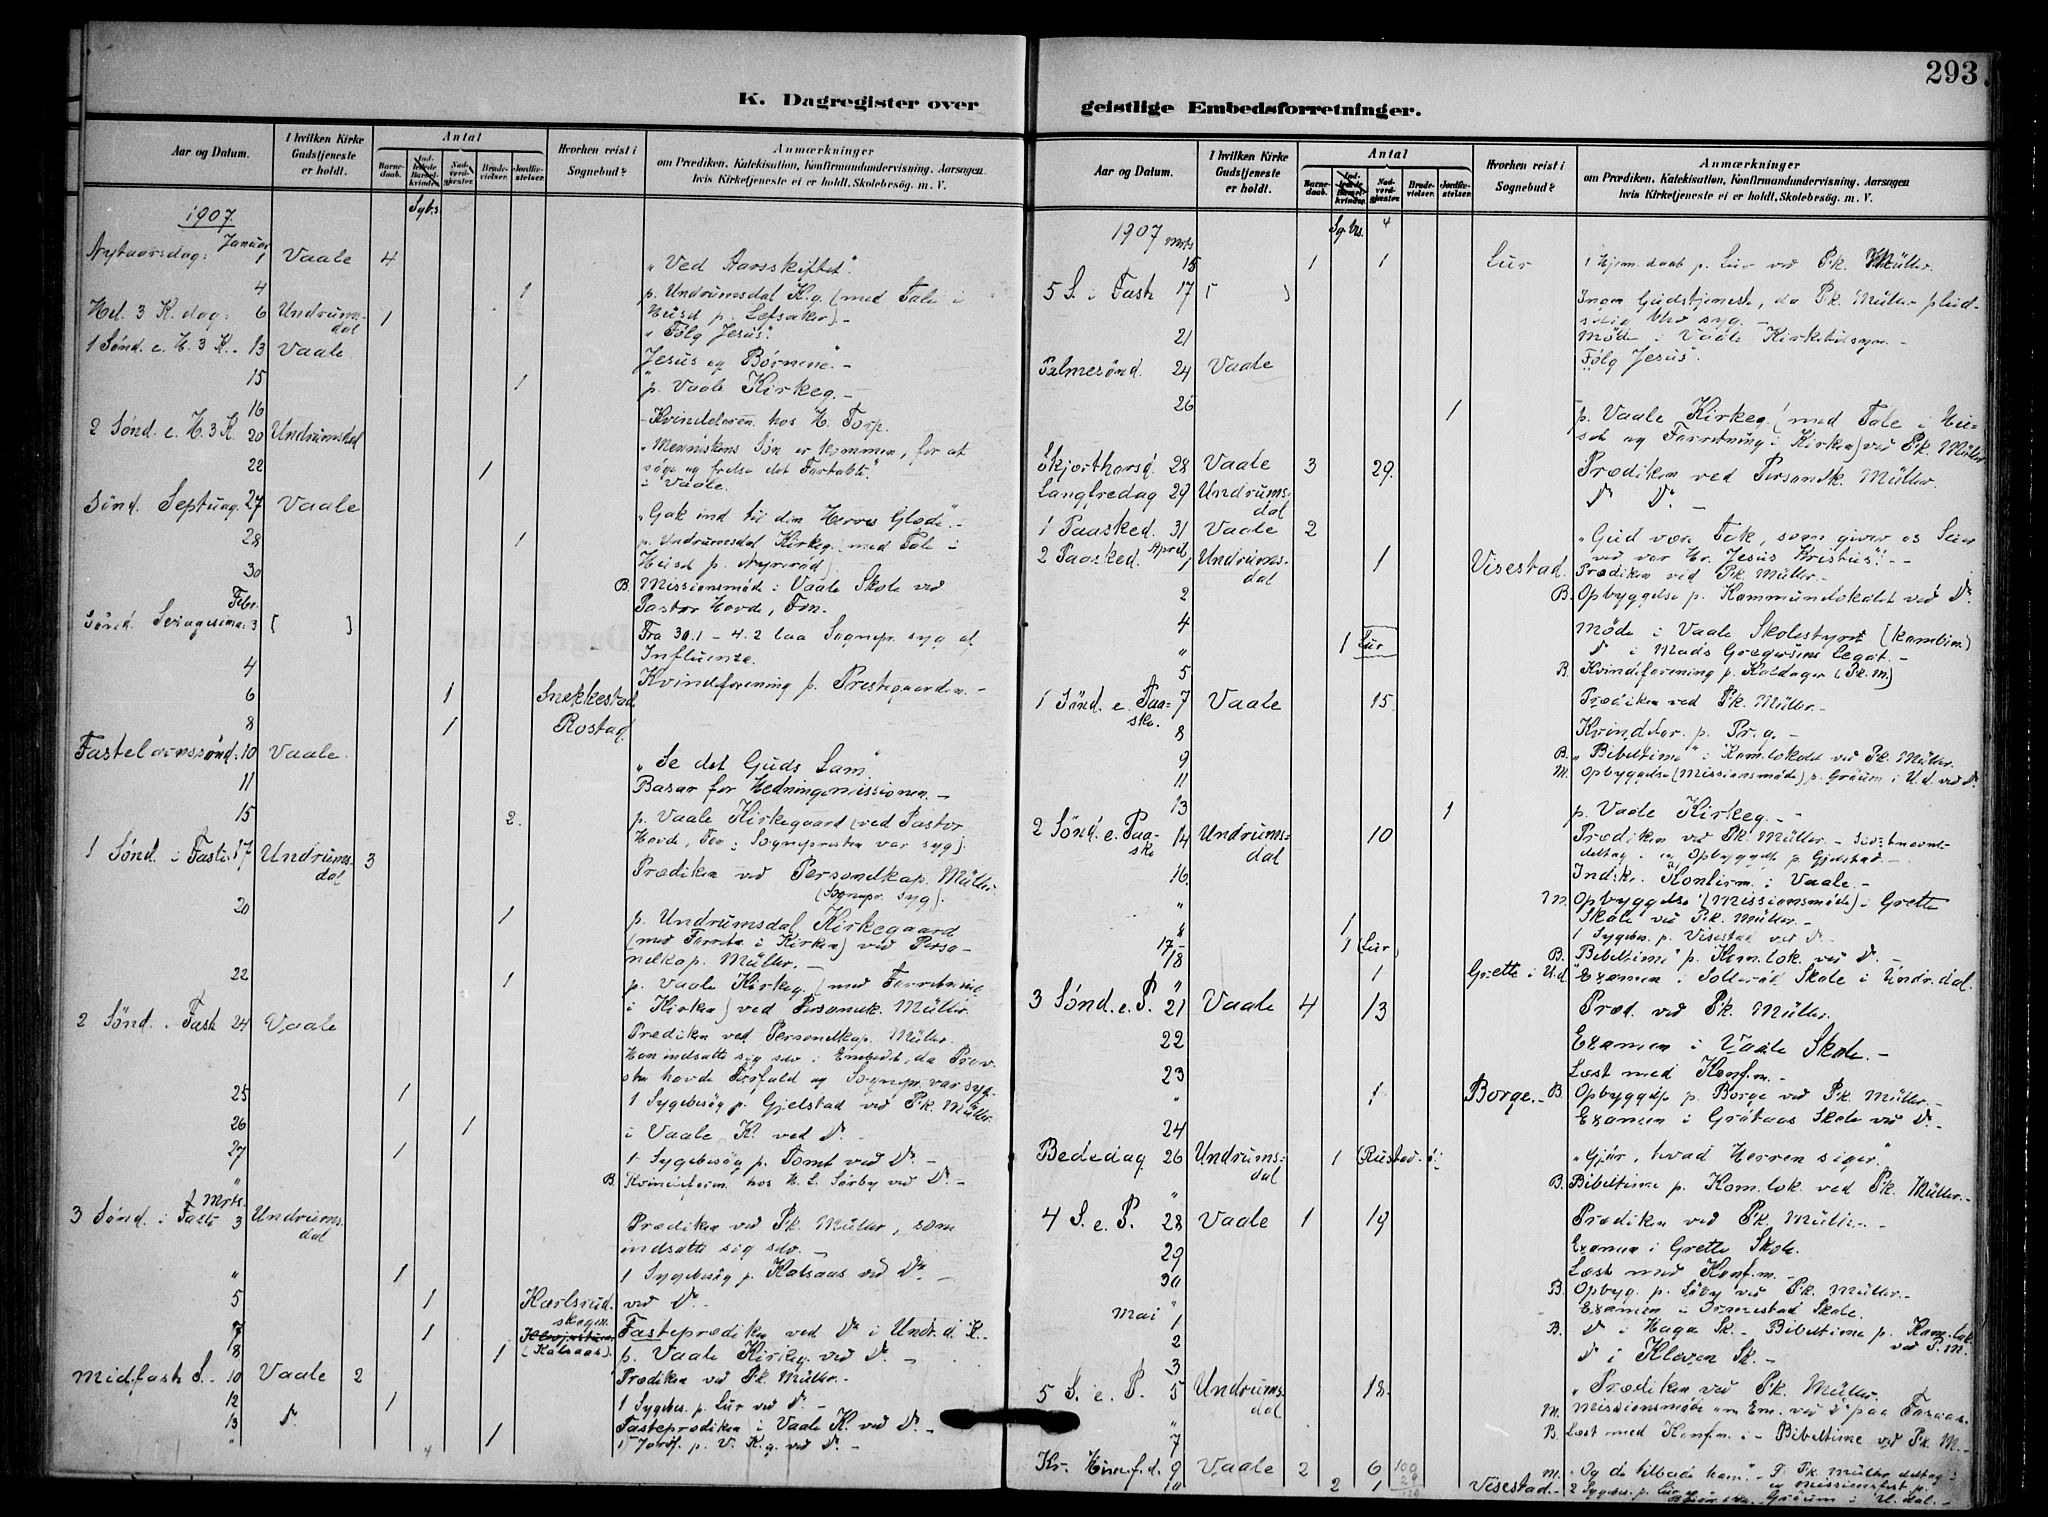 293.
K. Dagregister over
geistlige Embedsforretninger.
Aar og Datum.
I hvilken Kirke Gudstjeneste er holdt.
Antal
Barnedaab.
Indledede Barselkvinder.
Nadverdgjester.
Brudevielser.
Jordfæstelser.
Hvorhen reist i Sognebud?
Anmærkninger
om Prædiken, Katekisation, Konfirmandundervisning, Aarsagen
hvis Kirketjeneste ei er holdt, Skolebesøg. m. V.
1907. Sygbs.
Januar
Nytaarsdag: 1 Vaale 4 "Ved Aarsskiftet".
4 1 p. Undrumsdal K.g. (med Tale i
Hel. 3 K. dag: 6 Undrumsdal 1 Huset p. Lefsaker) –
"Følg Jesus".
1 Sønd. e. H. 3 K. 13 Vaale. "Jesus og Børnene". –
15 1 p. Vaale Kirkeg. –
16 Kvindeforen. hos H. Torp.
2 Sønd. e. H. 3 K. 20 Undrumsdal "Menneskens Søn er kommen, for at
søge og frelse det Fortabte".
22 1 i Vaale.
Sønd. Septuag. 27 Vaale "Gak ind til din Herres Glæde". –
28 1 p. Undrumsdal Kirkeg. (med Tale i
Huset p.
30 B. Missionsmøde i Vaale Skole ved
Pastor Hovde, Tøn.
Febr.
Sønd. Sexagesima 3 [ ] Fra 30.1 – 4.2 laa Sognepr. syg af
Influenza.
4 Kvindeforening p. Prestegaarden. –
6 1 Snekkestad
8 1 Rostad.
Fastelavnssønd. 10 Vaale. "Se det Guds Lam".
11 Basar for Hedningemissionen. –
15 2. p. Vaale Kirkegaard (ved Pastor
Hovde, Tøn; Sognepresten var syg).
1 Sønd. i Faste 17 Undrumsdal 3 Prædiken ved Personelkap. Müller
(Sognepr. syg).
20 1 p. Undrumsdal Kirkegaard
(med Forretn. i Kirken) ved Personelkap. Müller. –
22 1 p. Vaale Kirkeg. (med Forretning
i Kirken) ved Personelk. Müller.
2 Sønd. i Fast. 24 Vaale Prædiken ved Personelkap. Müller.
Han indsatte sig selv i Embedet, da Provsten havde Forfald og Sognepr. var syg.
25 1 1 Sygebesøg p. Gjelstad ved P.k. Müller
26 1 i Vaale K. ved Do. –
27 1 1 Sygebesøg p. Tomt ved Do. –
" B. Kvindeforen. hos H. L. Sørby ved Do. –
Mrts.
3 Sønd. i Faste 3 Undrumsdal Prædiken ved P.k. Müller, som
indsatte sig selv. –
" 1 1 Sygebesøg p. Kalsaas ved Do. –
5 1 Karlsrudskogen. ved Do. –
7 1 (Kalsaas). Fasteprædiken ved Do i Undr.d. K. –
8 1 p. Vaale Kirkeg. ved Do. –
Midfaste S. 10 Vaale 2 Prædiken ved P.k. Müller. –
12 1 1 Sygebes. p. Lur ved Do. –
13 Do. Fasteprædiken i Vaale K. ved Do. –
" 1 1 Jordf. p. V. K.g. ved Do. –
Aar og Datum.
I hvilken Kirke Gudstjeneste er holdt.
Antal
Barnedaab.
Indledede Barselkvinder.
Nadverdgjester.
Brudevielser.
Jordfæstelser.
Hvorhen reist i Sognebud?
Anmærkninger
om Prædiken, Katekisation, Konfirmandundervisning, Aarsagen
hvis Kirketjeneste ei er holdt, Skolebesøg. m. V.
1907 Mrts Sg.bs. 4
15 1 1 Lur 1 Hjem.daab p. Lur ved P.k. Müller.
5 S. i Fast. 17 [ ] Ingen Gudstjeneste, da P.k. Müller pludselig blev syg. –
21 Møde i Vaale Kirketilsyn. –
Palmesønd. 24 Vaale "Følg Jesus".
26 1 p. Vaale Kirkeg. (med Tale i Huset og Forretning i Kirken) ved P.k. Müller
Skjærthorsd. 28 Vaale 3 29. Prædiken ved Personelk. Müller.
Langfredag 29 Undrumsdal Do Do. –
1 Paasked. 31 Vaale 2 "Gud være Tak, som giver os Seier
ved vor Hr. Jesus Kristus"! –
April
2 Paasked. 1 Undrumsdal 1 Visestad. Prædiken ved P.k. Müller. –
2 B. Opbyggelse p. Kommunelokalet ved Do.
4 Møde i Vaale Skolestyre (kombin.)
" 1 Lur Do i Mads Gregersens legat. –
5 B. Kvindeforening p. Kaldager (P.k. M.)
1 Sønd. e. Paaske. 7 Vaale 15. Prædiken ved P.k. Müller. –
8 Kvindefor. p. Pr.g. –
9 B. "Bibeltime" i Kom.lokalet ved P.k. Müller.
11 M. Opbyggelse (Missionsmøde) p. Grøum i U.d. ved Do
13 1 p. Vaale Kirkeg. –
2 Sønd. e. Paaske 14 Undrumsdal 10 Prædiken ved P.k. Müller –
deltog i en Opbyggelse p. Gjelstad. –
16. Indskr. Konfirm. i Vaale. –
" M. Opbyggelse (Missionsmøde) i Grette
Skole ved P.k. Müller. –
" 1 1 Sygebes. p. Visestad ved Do. –
17 1 (Lur) B. "Bibeltime" p. Kom.lok. ved Do. –
18 1 Grette i U.d. Examen i Solerød Skole i Undr.dal.
3 Sønd. e. P. 21 Vaale 4 13 Præd. ved P.k. Müller.
22 Examen i Vaale Skole. –
23 Læst med Konf.m. –
" 1 Borge. – B. Opbyggelse p. Borge ved P.k. Müller. –
24 Examen i Skole ved Do. –
Bededag 26 Undrumsdal 1 (Rustad "Gjør, hvad Herren siger".
" B. Bibeltime p. Kom.lok. ved P.k. Müller. –
4 S. e. P. 28 Vaale 1 19 Prædiken ved P.k. Müller. –
29 Examen i Grette Skole.
30 Læst med Konf.m. –
" B. Opbyg. p. Søby ved P.k. Müller. –
Mai 1 Examen i Ormestad Skole.
2 B. Do i Haga Sk. – Bibeltime p. Kom.lok. ved P. M.
3 Do i Kleven Sk. –
5 S. e. P. 5 Undrumsdal 18. Prædiken ved P.k. Müller.
" M. Missionsmøde
7 B. Læst med Konf.m. – Bibeltime ved P.k. M. –
Kr. Himf.d. 9 Vaale 2 6 100 29 129 M. P.k. Müller deltog i
en Missionsfest p.
10 2 1 Visestad. – 2 Sygebes. p. Lur Grøum i U.dal. –